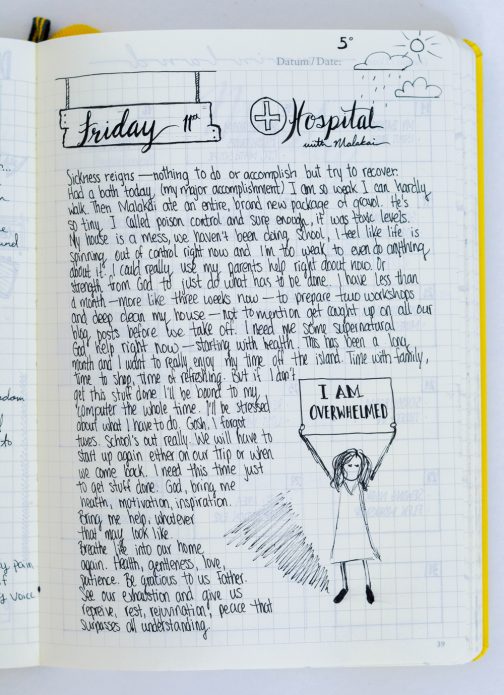 5°
Datum/Date:
Friday 11th
Hospital
with Malakai
Sickness reigns — nothing to do or accomplish but try to recover.
Had a bath today, (my major accomplishment) I am so weak I can hardly
walk. Then Malakai ate an entire, brand new package of gravol. He's
so tiny. I called poison control and sure enough, it was toxic levels.
My house is a mess, we haven't been doing school, I feel like life is
spinning out of control right now and I'm too weak to even do anything
about it. I could really use my parents help right about now. Or
strength from God to just do what has to be done. I have less than
a month — more like three weeks now — to prepare two workshops
and deep clean my house — not to mention get caught up on all our
blog posts before we take off. I need me some supernatural
God help right now — starting with health. This has been a long
month and I want to really enjoy my time off the island. Time with family,
time to shop, time of refreshing. But if I don't
get this stuff done I'll be bound to my
computer the whole time. I'll be stressed
about what I have to do. Gosh. I forgot
taxes. School's out really. We will have to
start up again either on our trip or when
we come back. I need this time just
to get stuff done. God, bring me
health, motivation, inspiration.
Bring me help, whatever
that may look like.
Breathe life into our home
again. Health, gentleness, love,
patience. Be gracious to us Father.
See our exhaustion and give us
reprieve, rest, rejuvination, peace that
surpasses all understanding.
I AM
OVERWHELMED
39